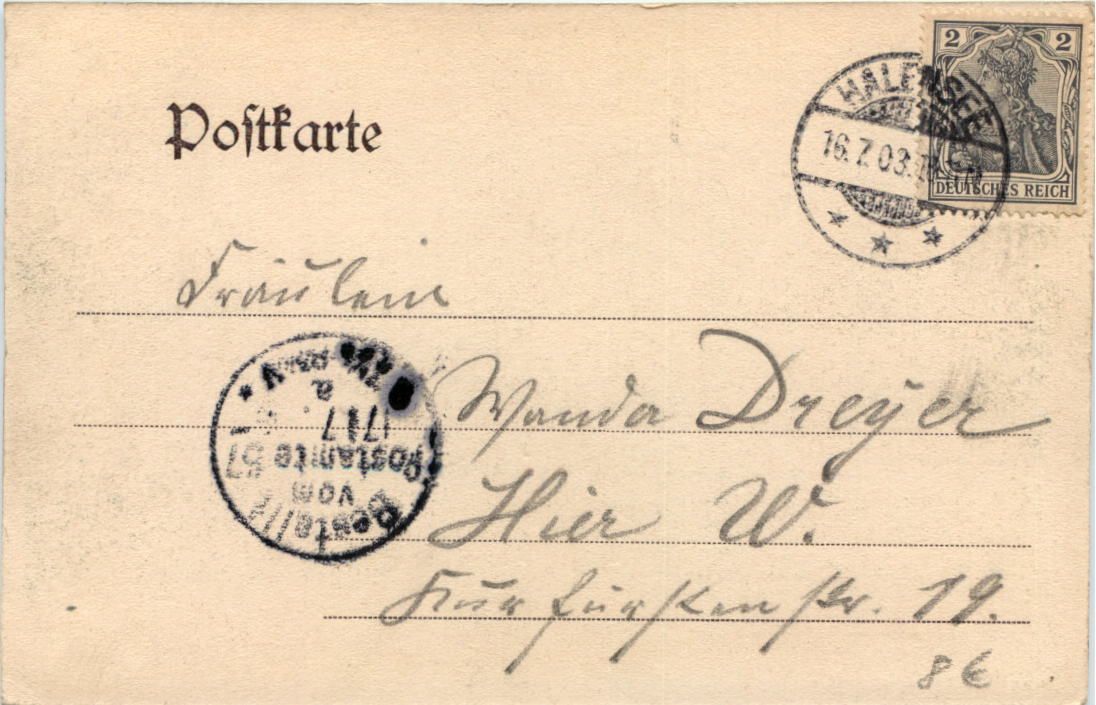 Postkarte
2 2
DEUTSCHES REICH
HALENSEE
16.7.03.
Fräulein
Wanda Dreyer
Hier W.
Kurfürstenstr. 19.
Bestellt
vom
Postamte 57
17.7
8€